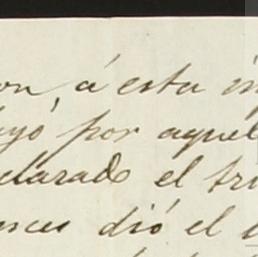 on, á esta in
uyó por aquel
clarado el tri
dió el